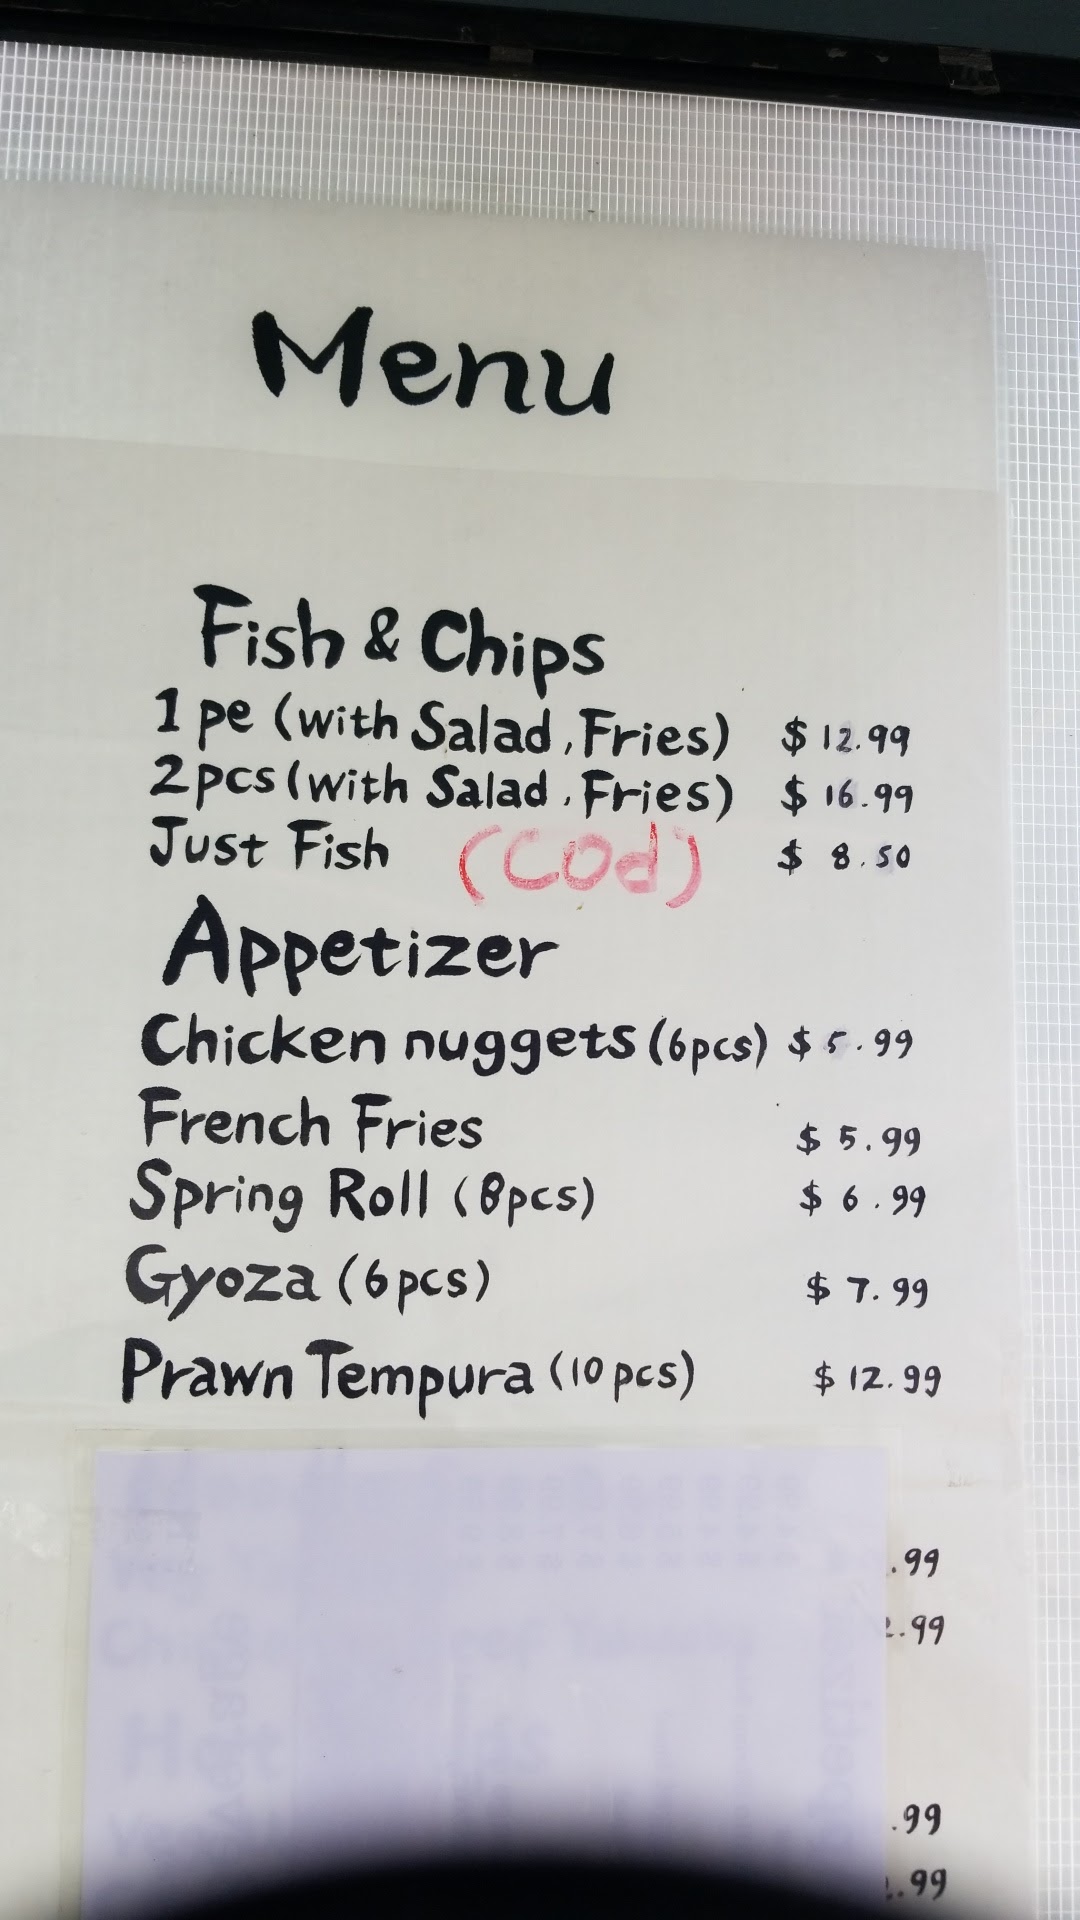 Menu
Fish & Chips
1 pe (with Salad, Fries) $ 12.99
2 pcs (with Salad, Fries) $ 16.99
Just Fish (COd) $ 8.50
Appetizer
Chicken nuggets (6pcs) $ 5.99
French Fries $ 5.99
Spring Roll (8pcs) $ 6.99
Gyoza (6pcs) $ 7.99
Prawn Tempura (10 pcs) $ 12.99
.99
.99
.99
.99